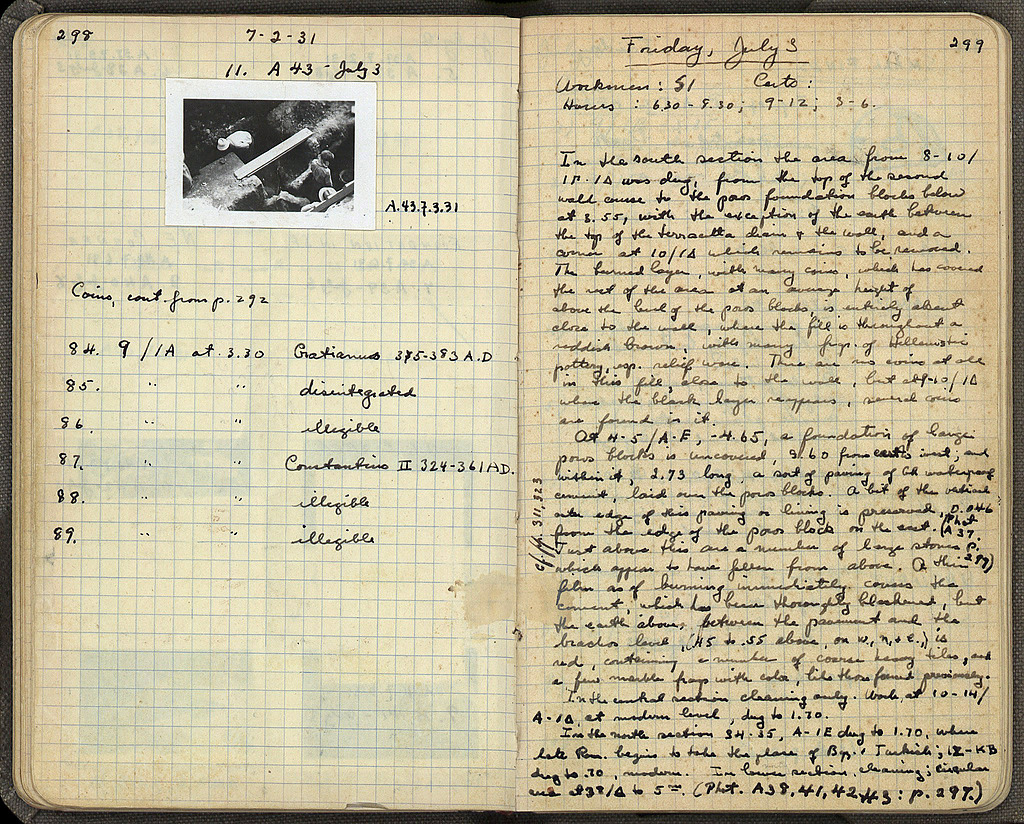 298
7-2-31
11. A 43 - July 3
A.43.7.3.31
Coins, cont. from p. 292
84. 9/IA at 3.30 Gratianus 375-383 A.D
85. " " disintegrated
86. " " illegible
87. " " Constantius II 324-361 AD.
88. " " illegible
89. " " illegible
299
Friday, July 3
Workmen: 51 Carts:
Hours: 6.30-8.30; 9-12; 3-6.
In the south section the area from 8-10/
was dug, from the top of the second
wall course to the poros foundation blocks below
at 3.55, with the exception of the earth between
the top of the terracotta drain & the wall, and a
corner at 10/IΔ which remains to be removed.
The burned layer, with many coins, which has covered
the rest of the area at an average height of
above the level of the poros blocks, is entirely absent
close to the wall, where the fill is throughout a
reddish brown, with many frgs. of Hellenistic
pottery, esp. relief ware. There are no coins at all
in this fill, close to the wall, but at 9-10/IΔ
where the black layer reappears, several coins
are found in it.
At 4-5/A-E, -4.65, a foundation of large
poros blocks is uncovered, 3.60 from east to west; and
within it, 2.73 long, a sort of paving of waterproof
cement, laid over the poros blocks. A bit of the vertical
outer edge of this paving or lining is preserved, 0.046
from the edge of the poros block on the east. (Phot. A 37. p. 297)
Just above this are a number of large stones
which appear to have fallen from above. A thin
film as of burning immediately covers the
cement, which has been thoroughly blackened, but
the earth above, between the pavement and the
level, (.45 to .55 above, on w., n., & e.,) is
red, containing a number of coarse heavy tiles, and
a few marble frags with color, like those found previously.
cf. pp. 311, 323
In the central section cleaning only. Work at 10-14/
A-IΔ, at modern level, dug to 1.70.
In the north section 34-35, A-IE dug to 1.70, where
late Rom. begins to take the place of Byz. & Turkish; IZ-KB
dug to .70, modern. In lower section, cleaning; circular
at 38/Δ to 5m. (Phot. A38, 41, 42 #3: p. 297.)